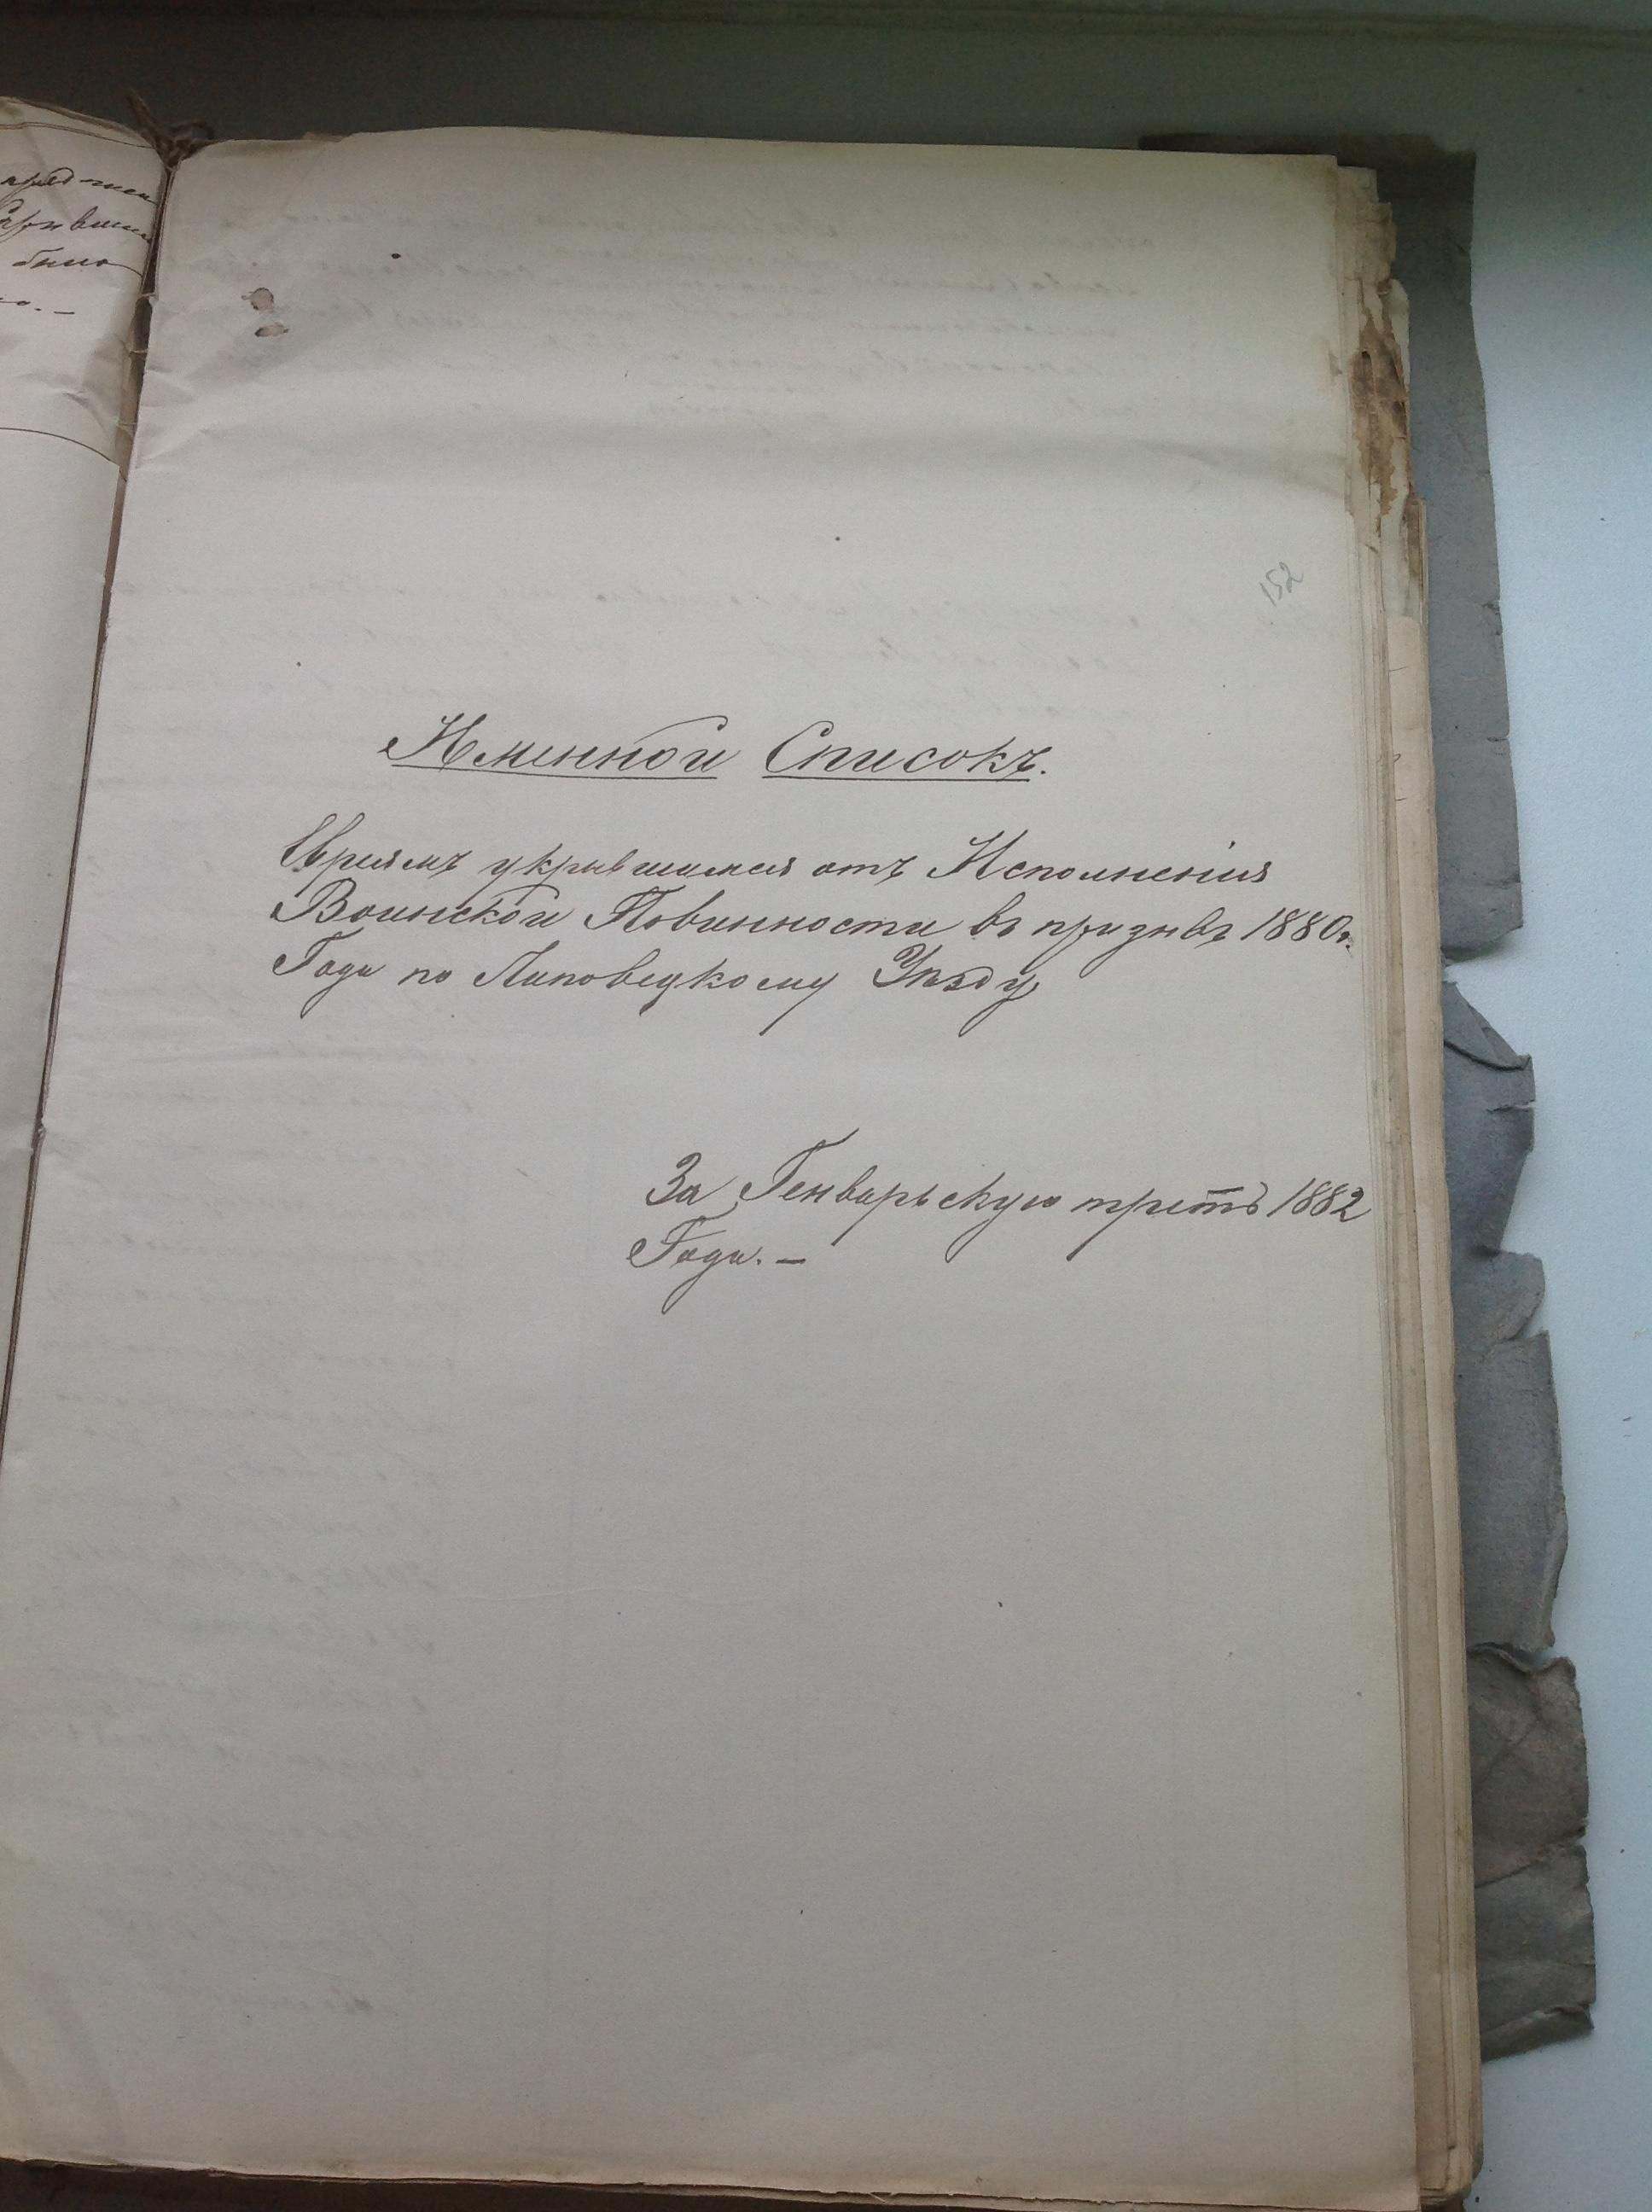 152
Именной Списокъ.
Евреямъ укрывшимся отъ Исполненія
Воинской Повинности въ призывъ 1880г.
Года по Липовецкому Уѣзду
За Генварьскую треть 1882
Года. –
было